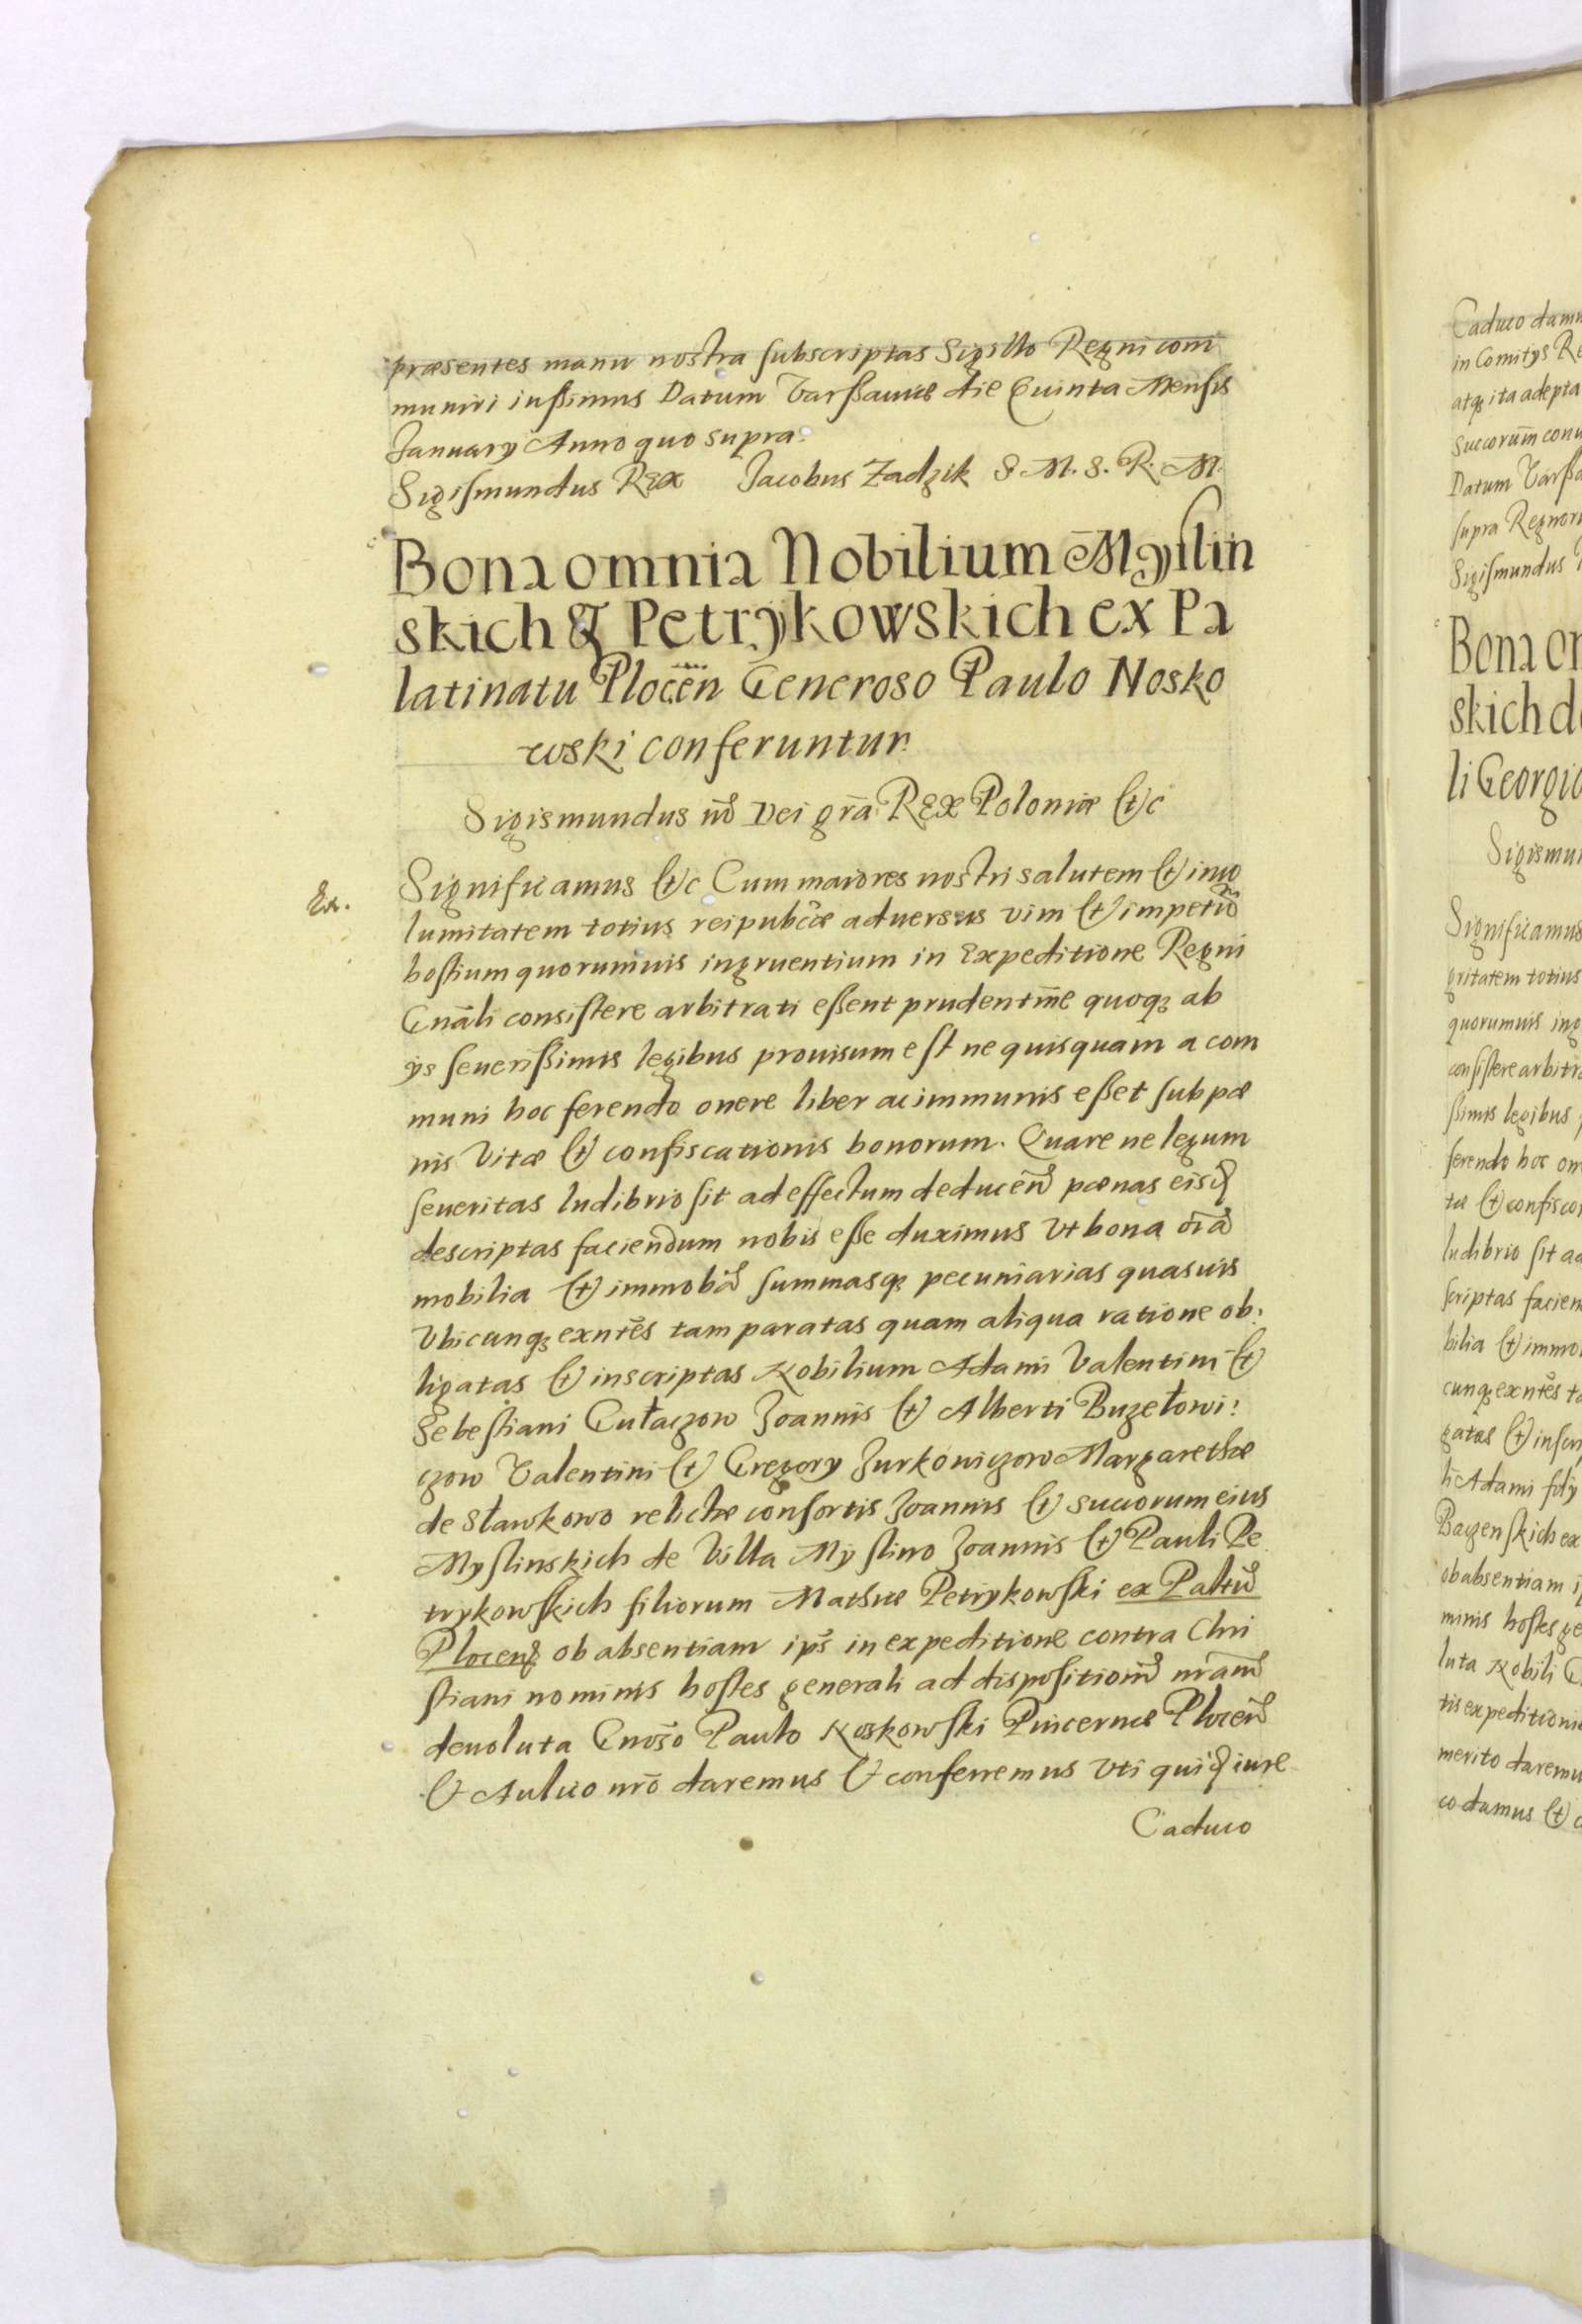 præsentes manu nostra subscriptas Sigillo Regni com̄
muniri iussimus Datum Varssauiæ die Quinta Mensis
January Anno quo supra.
Sigismundus REX Jacobus Zadzik S. M. S. R. M.
Bona omnia Nobilium Myslin
skich & Petrykowskich ex Pa
latinatu Ploceñ Generoso Paulo Nosko
wski conferuntur.
Sigismundus iiị Dei grã REX Poloniæ &c
Ex.
Significamus &c Cum maiores nostri salutem & inco
lumitatem totius reipubcæ aduersus vim & impetū
hostium quorumuis ingruentium in Expeditione Regni
Gnāli consistere arbitrati essent prudentm̄e quoqȝ ab
ijs seuerissimis legibus prouisum est ne quisquam a com
muni hoc ferendo onere liber ac immunis esset sub pæ
nis Vitæ & confiscationis bonorum. Quare ne legum
seueritas ludibrio sit ad effectum deducen̄ pænas eisd
descriptas faciendum nobis esse duximus Vt bona oīa
mobilia & immobia summasqȝ pecuniarias quasuis
Vbicunqȝ exnt̄es tam paratas quam aliqua ratione ob:
ligatas & inscriptas Nobilium Adami Valentini &
Sebestiani Gułaczow Joannis & Alberti Buzełowi:
czow Valentini & Gregory Jurkowiczow Margarethæ
de Sławkowo relictæ consortis Joannis & Succorum eius
Myslinskich de Villa Myslino Joannis & Pauli Pe
trykowskich filiorum Mathiæ Petrykowski ex Paltū
Plocen ob absentiam ips̄ in expeditione contra Chri
stiani nominis hostes generali ad dispositionē nr̄am
deuoluta Gnōso Paulo Noskowski Pincernæ Plocen̄
& Aulico nrō daremus & conferremus Vti quid iure
Caduco
Caduco damu
in Comitys Re
atqȝ ita adepta
Succorum̄ conu
Datum Varssa
supra Regnoru
Sigismundus
Bona om
skich d
li Georgio
Sigismu
Significamus
gritatem totius
quorumuis ing
consistere arbitra
ssimis legibus
ferendo hoc on
tæ & confisca
ludibrio sit ad
scriptas facien
bilia & immo
cunqȝ exnt̄es ta
gatas & inscri
li Adami fily
Baczenskich ex
ob absentiam i
minis hostes ge
luta Nobili G
tis expeditionis
merito daremu
co damus & c